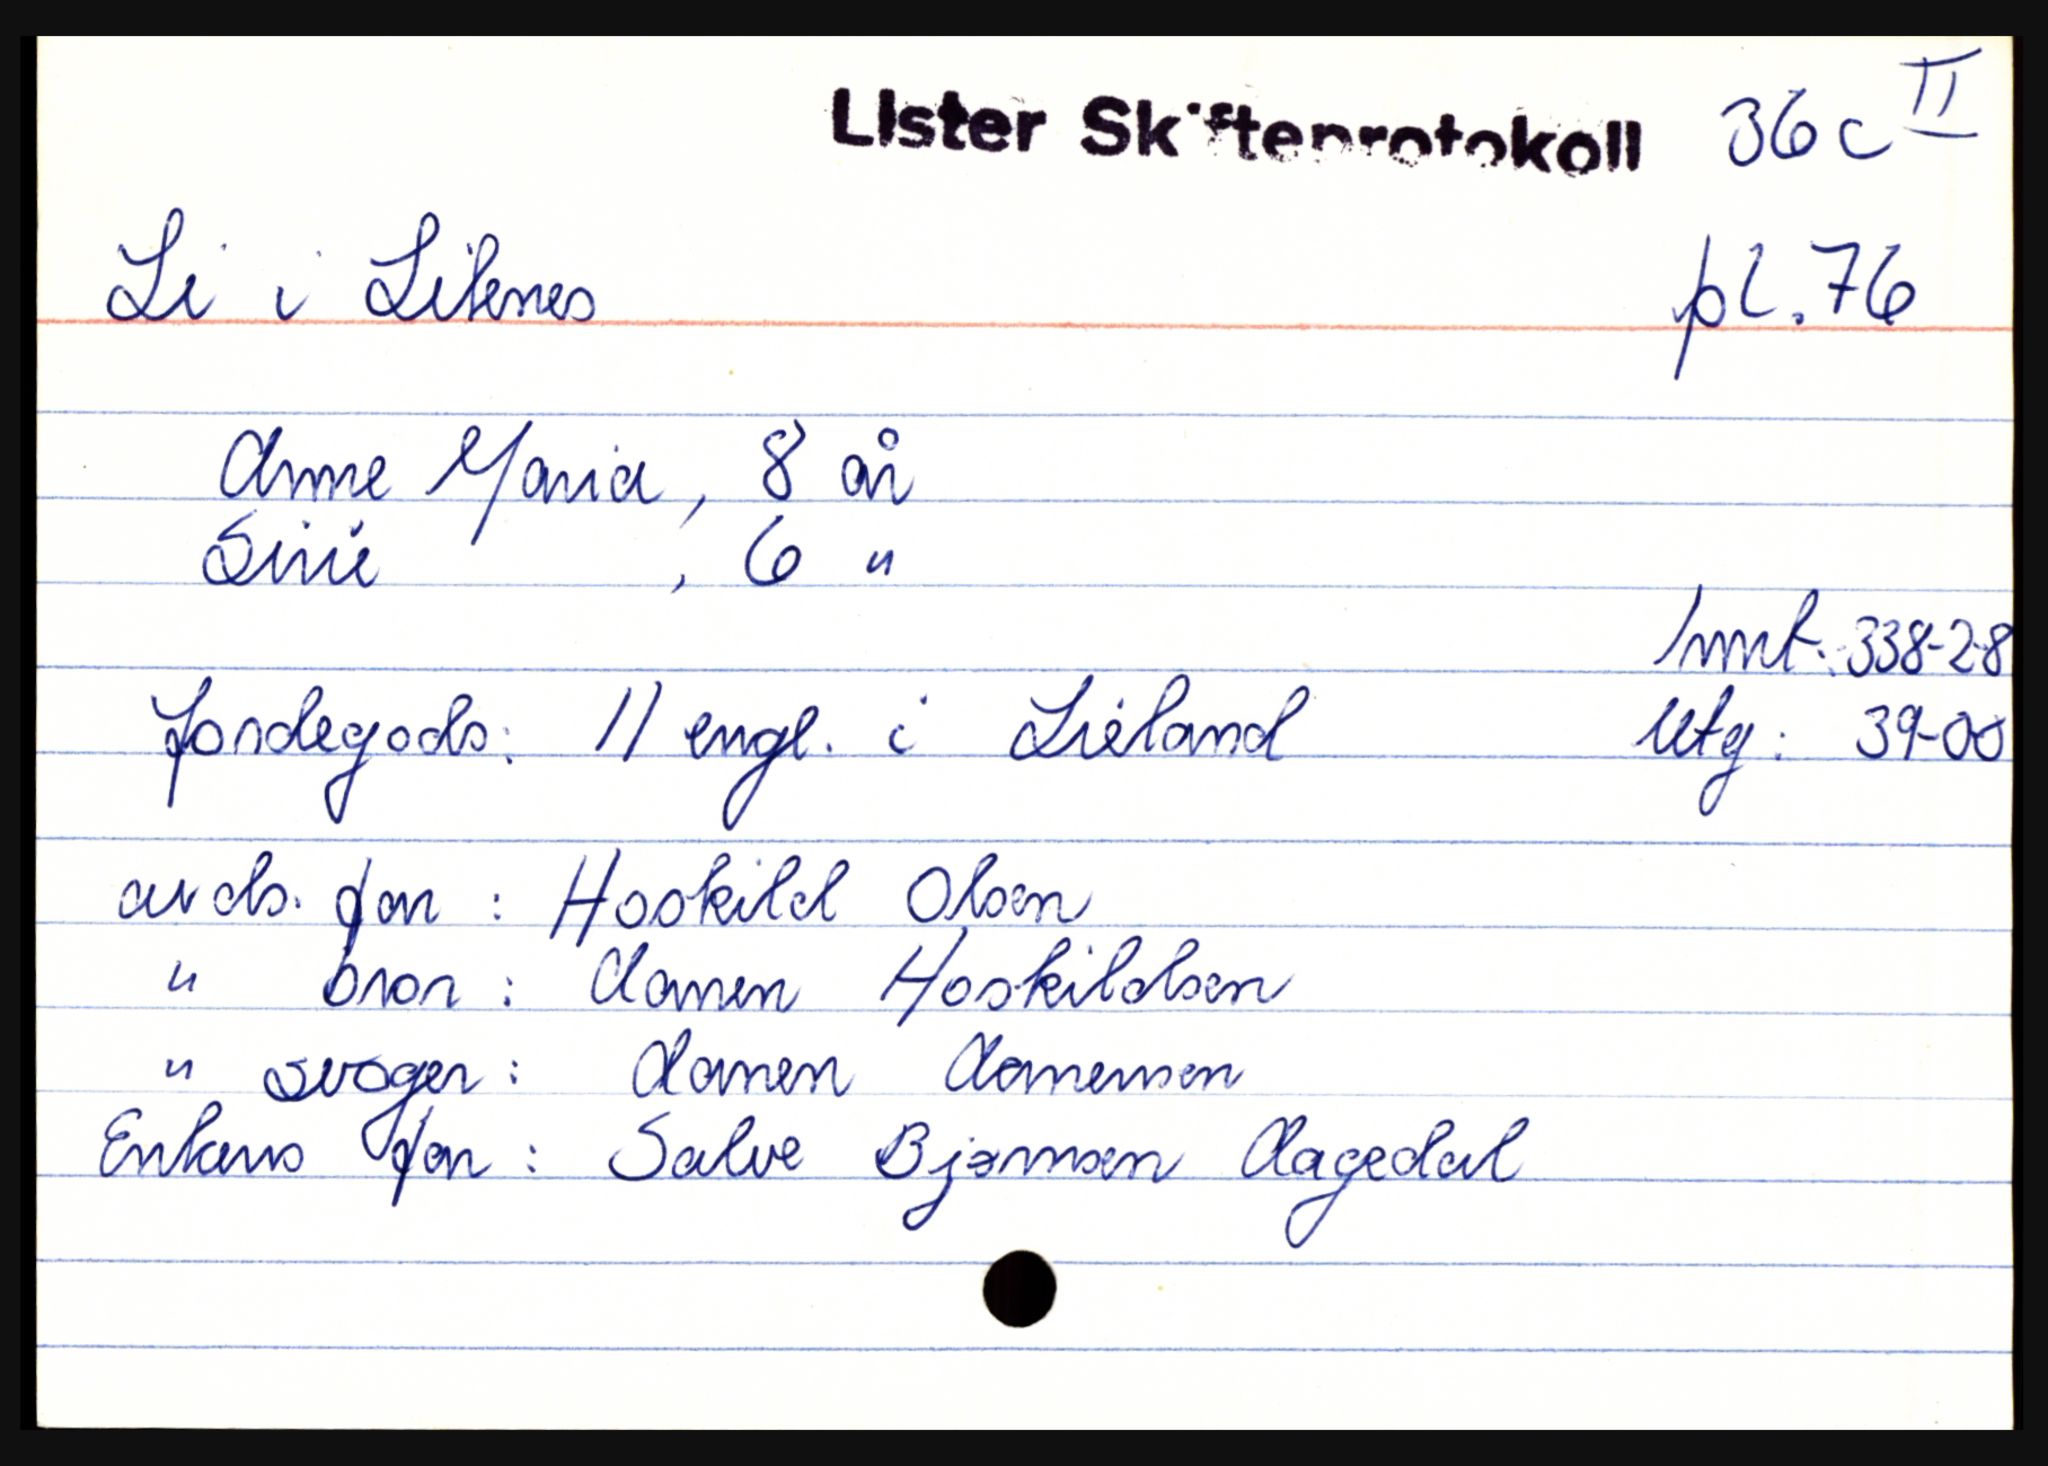 Lister Skifteprotokoll 36 c II
Li i Liknes pl. 76
Anne Maria, 8 år
Sirie , 6 "
Innt.: 338-2-8
Jordegods: 11 engl. i Lieland Utg: 39-00
avds. far: Hoskild Olsen
" bror: Aanen Hoskildsen
" svoger: Aanen Aanensen
Enkens far: Salve Bjørnsen Aagedal